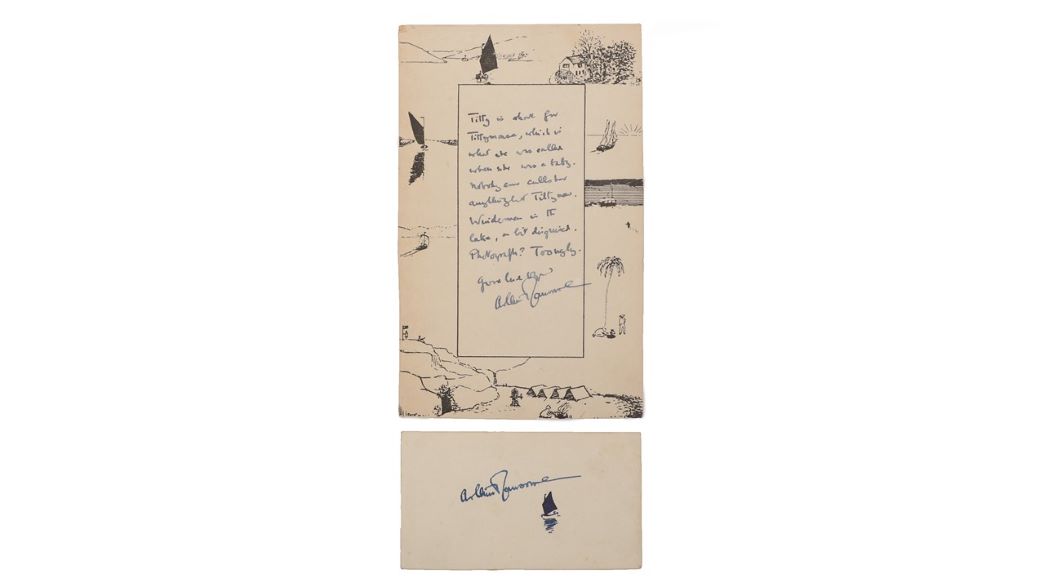 Titty is short for
Tittymouse, which is
what she was called
when she was a baby.
Nobody ever calls her
anything but Titty now.
Windermere is the
lake, a bit disguised.
Photograph? Too ugly.
Good luck to you
Arthur Ransome
Arthur Ransome